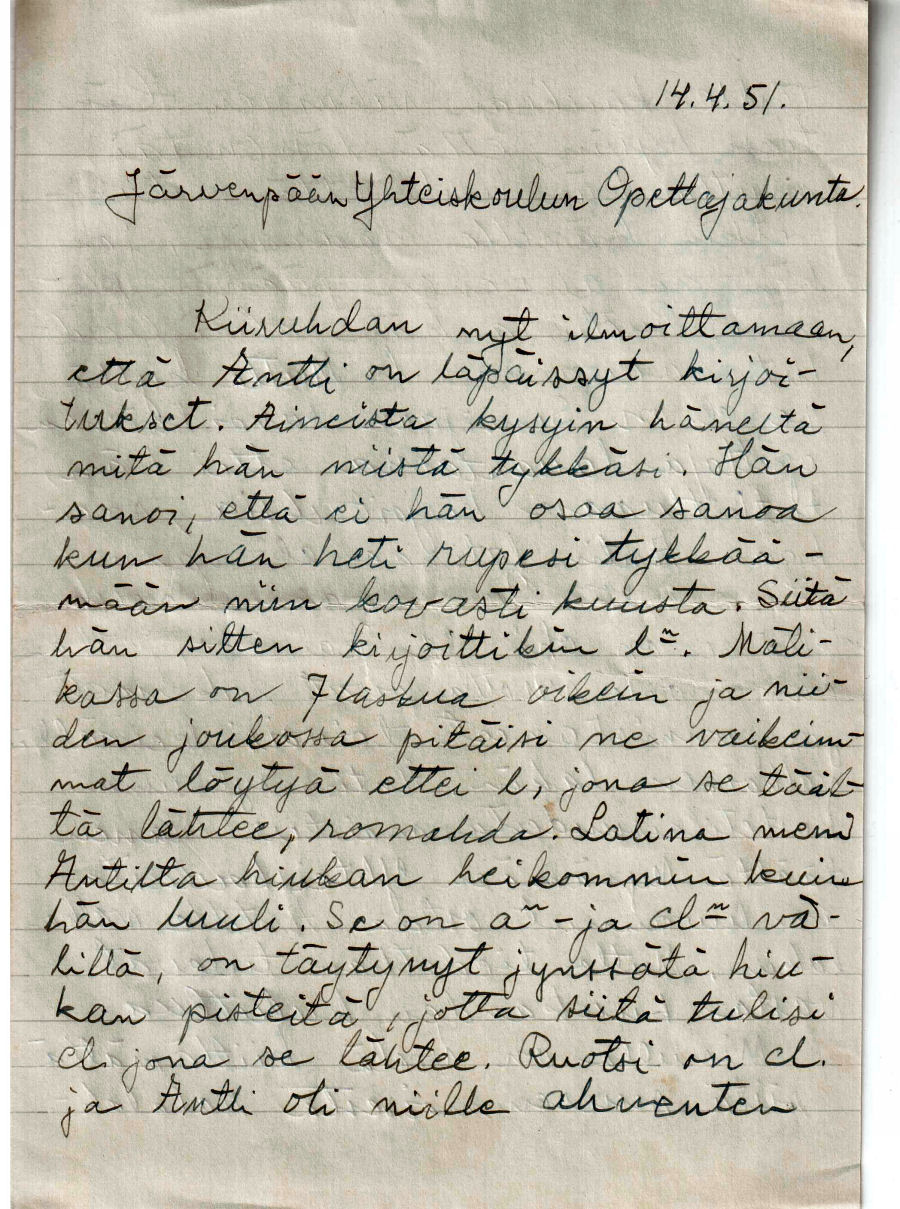 14.4.51.
Järvenpään Yhteiskoulun Opettajakunta.
Kiiruhdan nyt ilmoittamaan,
että Antti on läpäissyt kirjoi-
tukset. Aineista kysyin häneltä
mitä hän niistä tykkäsi. Hän
sanoi, että ei hän osaa sanoa
kun hän heti rupesi tykkää-
mään niin kovasti kuusta. Siitä
hän sitten kirjoittikin l~. Mati-
kassa on 7 laskua oikein ja nii-
den joukossa pitäisi ne vaikeim-
mat löytyä ettei l, jona se tääl-
tä lähtee, romahda. Latina meni
Antilta hiukan heikommin kuin
hän luuli. Se on a~ - ja cl~ vä-
lillä, on täytynyt jynssätä hiu-
kan pisteitä, jotta siitä tulisi
cl. jona se lähtee. Ruotsi on cl.
ja Antti oli niille ahventen